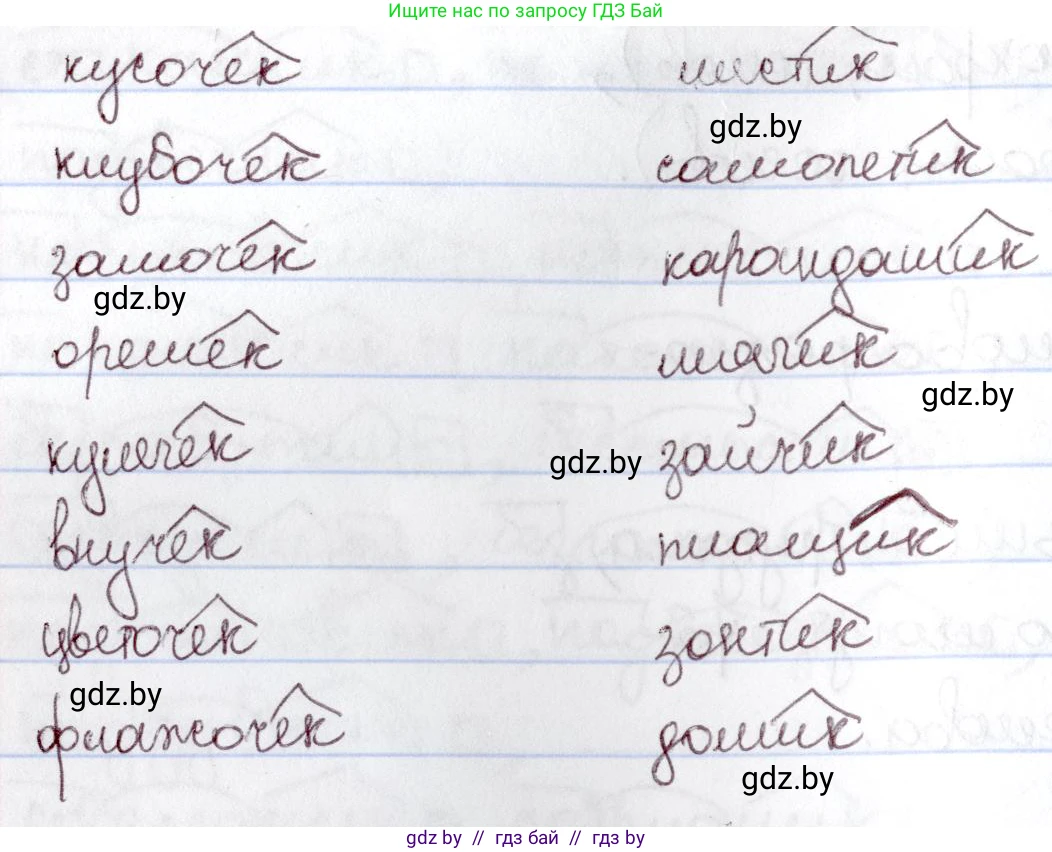 Ищите нас по запросу ГДЗ Бай
кусочек листик
gdz.by
клубочек самолетик
замочек карандашик
gdz.by
орешек мячик
gdz.by
кулечек gdz.by зайчик
внучек плащик
цветочек зонтик
gdz.by
флажочек домик
gdz.by
gdz by // гдз бай // гдз by